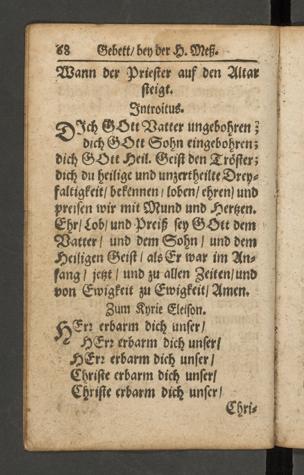 68 Gebett/ bey der H. Meß.
Wann der Priester auf den Altar
steigt.
Introitus.
DIch GOtt Vatter ungebohren;
dich GOtt Sohn eingebohren;
dich GOtt Heil. Geist den Tröster;
dich du heilige und unzertheilte Drey-
faltigkeit/ bekennen/ loben/ ehren/ und
preisen wir mit Mund und Hertzen.
Ehr/ Lob/ und Preiß sey GOtt dem
Vatter/ und dem Sohn/ und dem
Heiligen Geist/ als Er war im An-
fang/ jetzt/ und zu allen Zeiten/ und
von Ewigkeit zu Ewigkeit/ Amen.
Zum Kyrie Eleison.
HErr erbarm dich unser/
HErr erbarm dich unser/
HErr erbarm dich unser/
Christe erbarm dich unser/
Christe erbarm dich unser/
Chri-